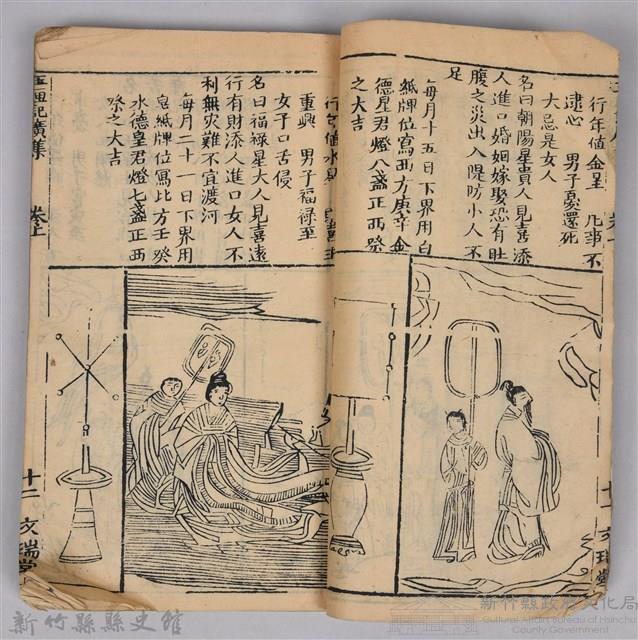 行年值金星 凡事不
逮心 男子憂還死
大忌是女人
名曰朝陽星貴人見喜添
人進口婚姻嫁娶恐有肚
腹之災出入隄防小人不
足
每月十五日下界用白
紙牌位寫西方庚辛金
德星君燈八盞正西祭
之大吉
十一 文瑞堂
行年值水星
重興 男子福祿至
女子口舌侵
名曰福祿星大人見喜遠
行有財添人進口女人不
利無灾難不宜渡河
每月二十一日下界用
皂紙牌位寫比方壬癸
水德皇君燈七盞正西
祭之大吉
玉匣記廣集 卷上
十二 文瑞堂
新竹縣縣史館
新竹縣政府文化局
Cultural Affairs Bureau of Hsinchu
County Government